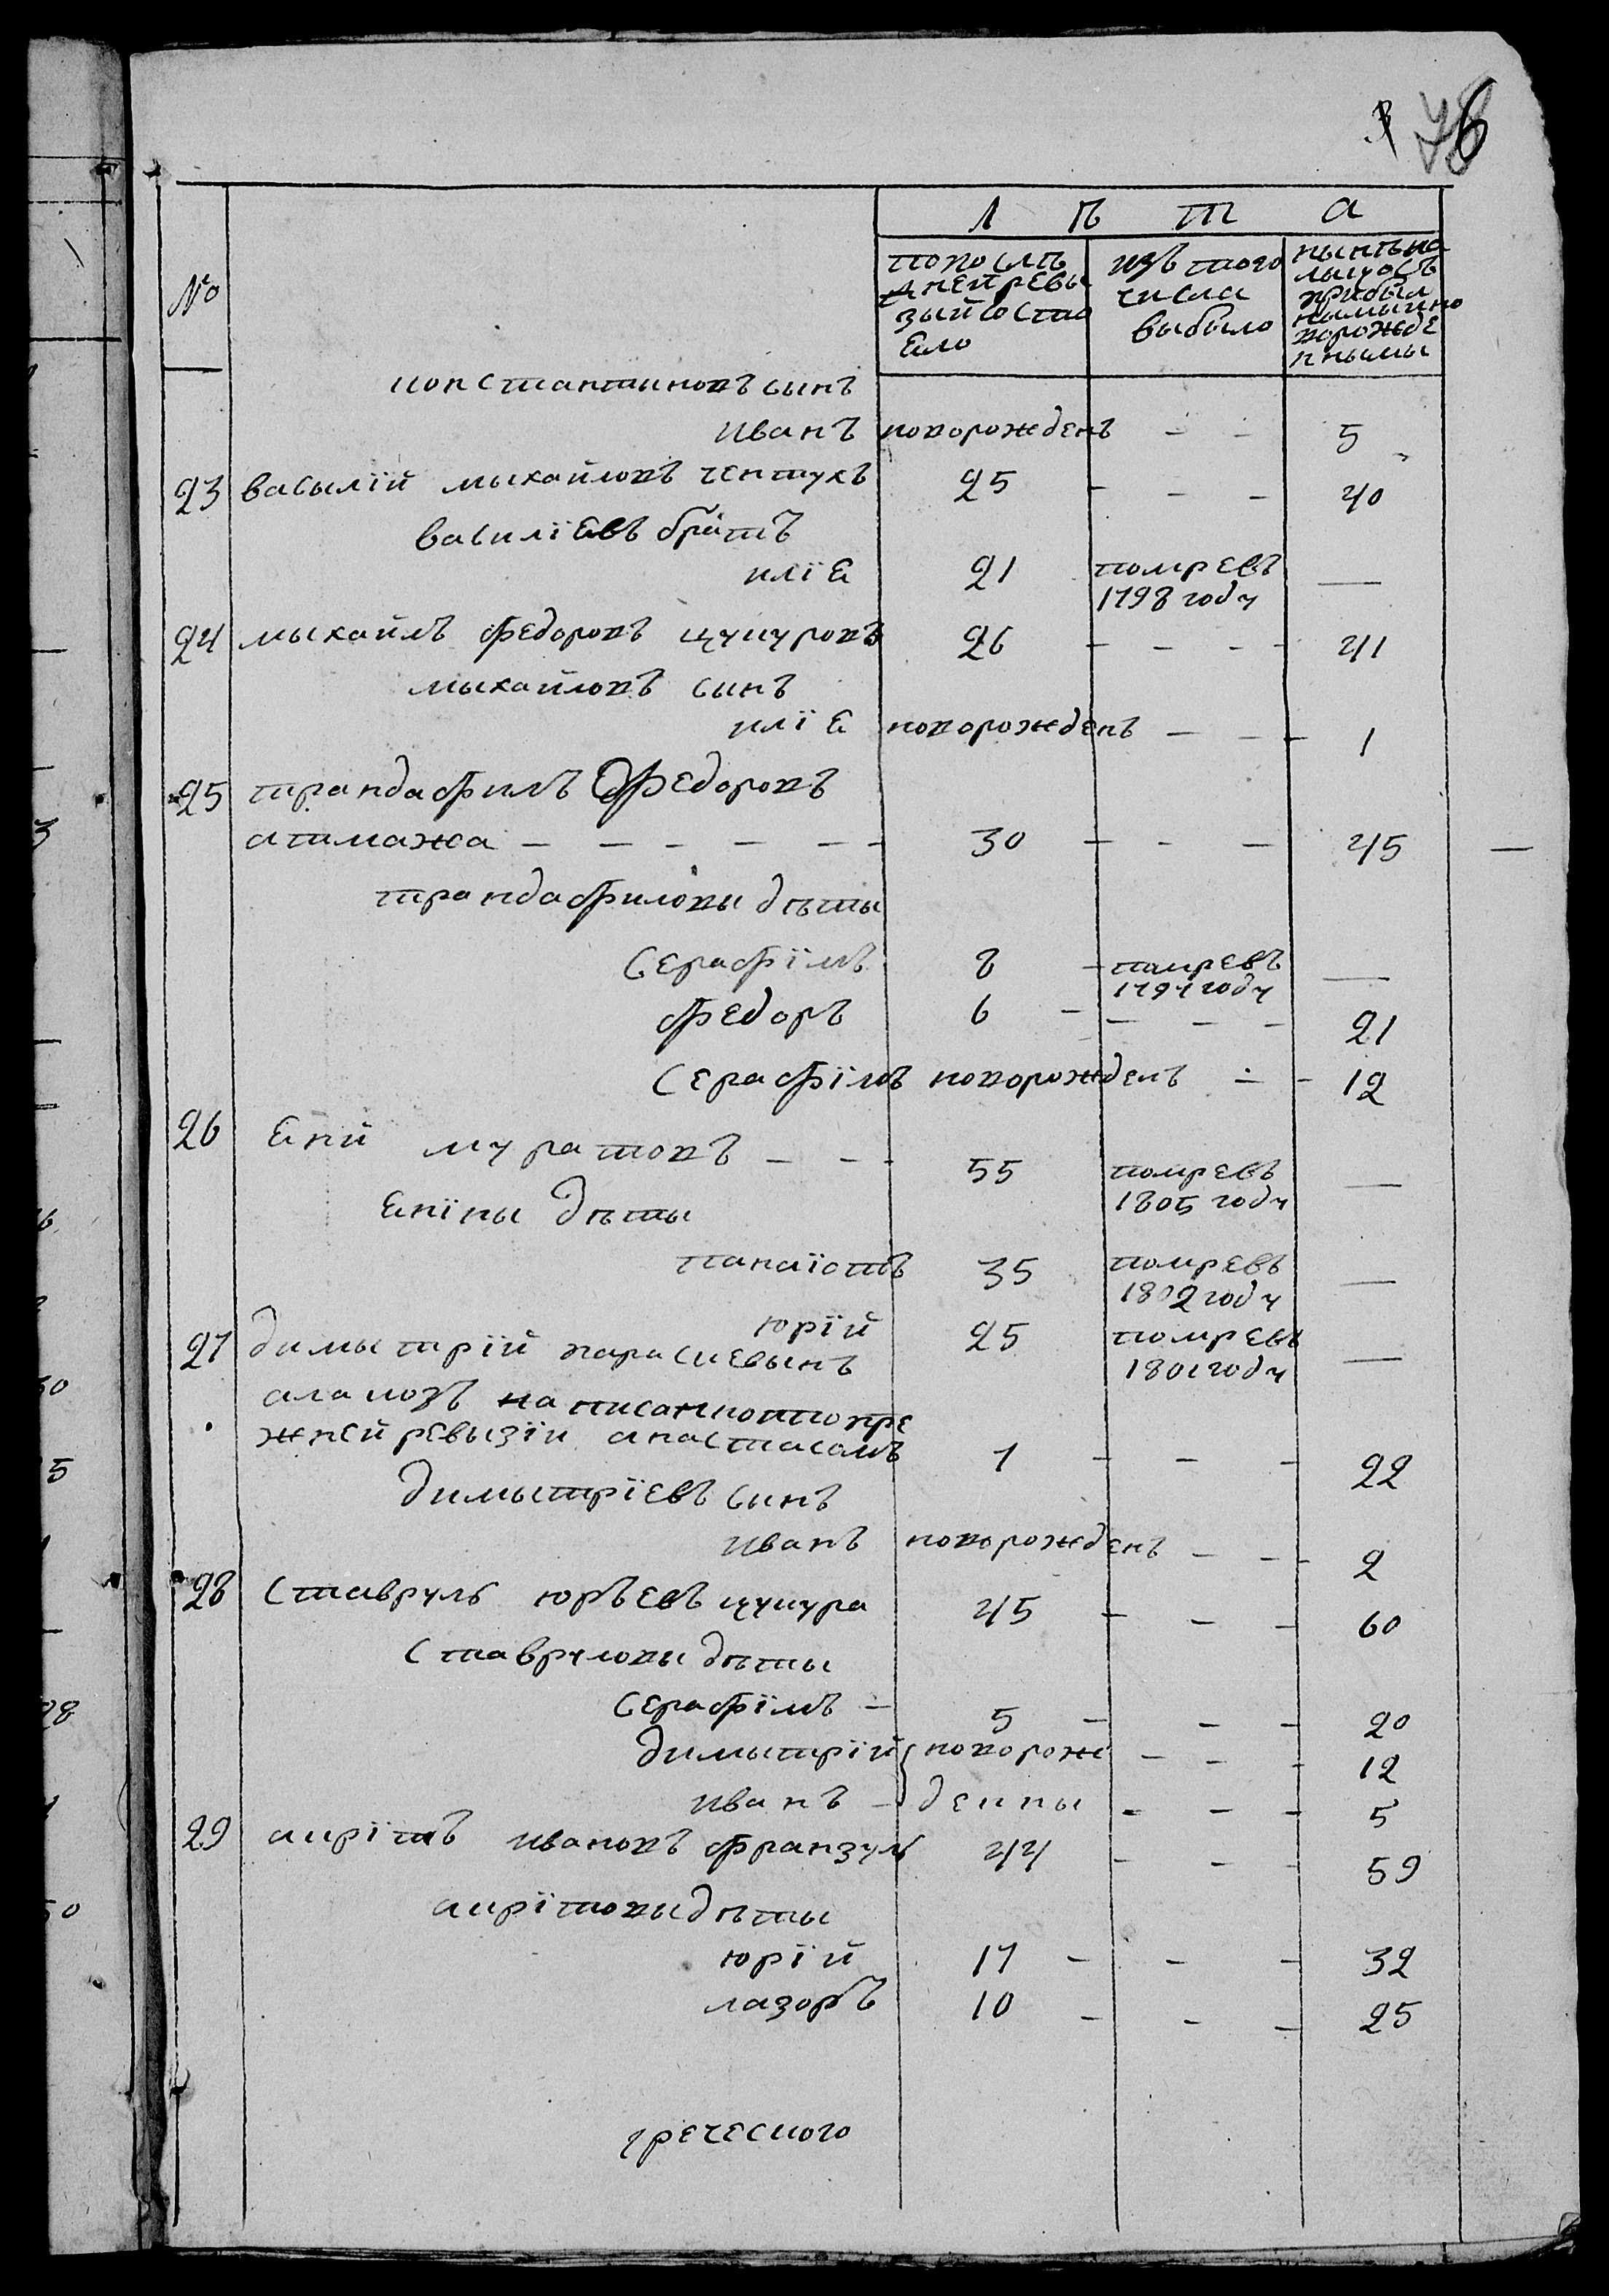 76
№
Л ѣ т а
по послѣ
дней ревы
зыи состо
яло
изъ того
числа
выбыло
нынѣ на
лыцо съ
прибыл
нымы и но
ворожде
ннымы
константиновъ сынъ
иванъ новорожденъ - - 5
23 васылїй мыхайловъ чентухъ 25 - - - 40
василїевъ братъ
илїя 21 помревъ —
1798 году
24 мыхайлъ федоровъ цукуровъ 26 - - - - 41
мыхайловъ сынъ
илїя новорожденъ - - - 1
25 трандафилъ Федоровъ
атмажа - - - - - - 30 - - - 45 —
трандафиловы дѣты
серафїмъ 8 - помревъ —
1794 году
федоръ 6 - - - - 21
серафїмъ новорожденъ - - 12
26 яни муратовъ - - - 55 помревъ —
1805 году
янїны дѣты
панаїотъ 35 помревъ —
1802 году
юрїй 25 помревъ —
1801 году
27 димытрїй парасцевынъ
алакозъ написанно по пре
жней ревызїи анастасомъ 7 - - - 22
димытрїевъ сынъ
иванъ новорожденъ - - - 2
28 ставрулъ юрьевъ цукура 45 - - - 60
ставруловы дѣты
серафїмъ - 5 - - - 20
димытрїй { новорож - - - 12
иванъ - денны - - - 5
29 кирїакъ ивановъ франзулъ 44 - - - 59
кирїаковы дѣты
юрїй 17 - - - 32
лазоръ 10 - - - 25
греческого